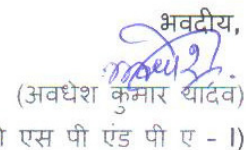 भवदीय,
(अवधेश कुमार यादव)
एस पी एंड पी ए - I)